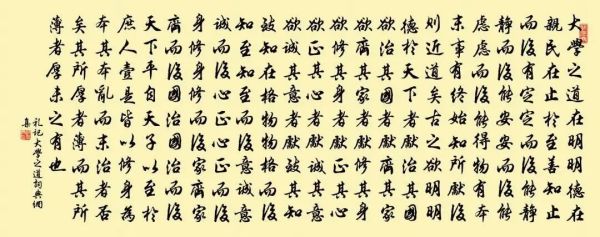 大學之道在明明德在
親民在止於至善知止
而後有定定而後能靜
靜而後能安安而後能
慮慮而後能得物有本
末事有終始知所獻後
則近道矣古之欲明明
德於天下者獻治其國
欲治其國者獻齊其家
欲齊其家者獻修其身
欲修其身者獻正其心
欲正其心者獻誠其意
欲誠其意者獻致其知
致知在格物物格而後
知至知至而後意誠意
誠而後心正心正而後
身修身修而後家齊家
齊而後國治國治而後
天下平自天子以至於
庶人壹是皆以修身為
本其本亂而末治者否
矣其所厚者薄而其所
薄者厚未之有也
礼記大學之道詞典網
集